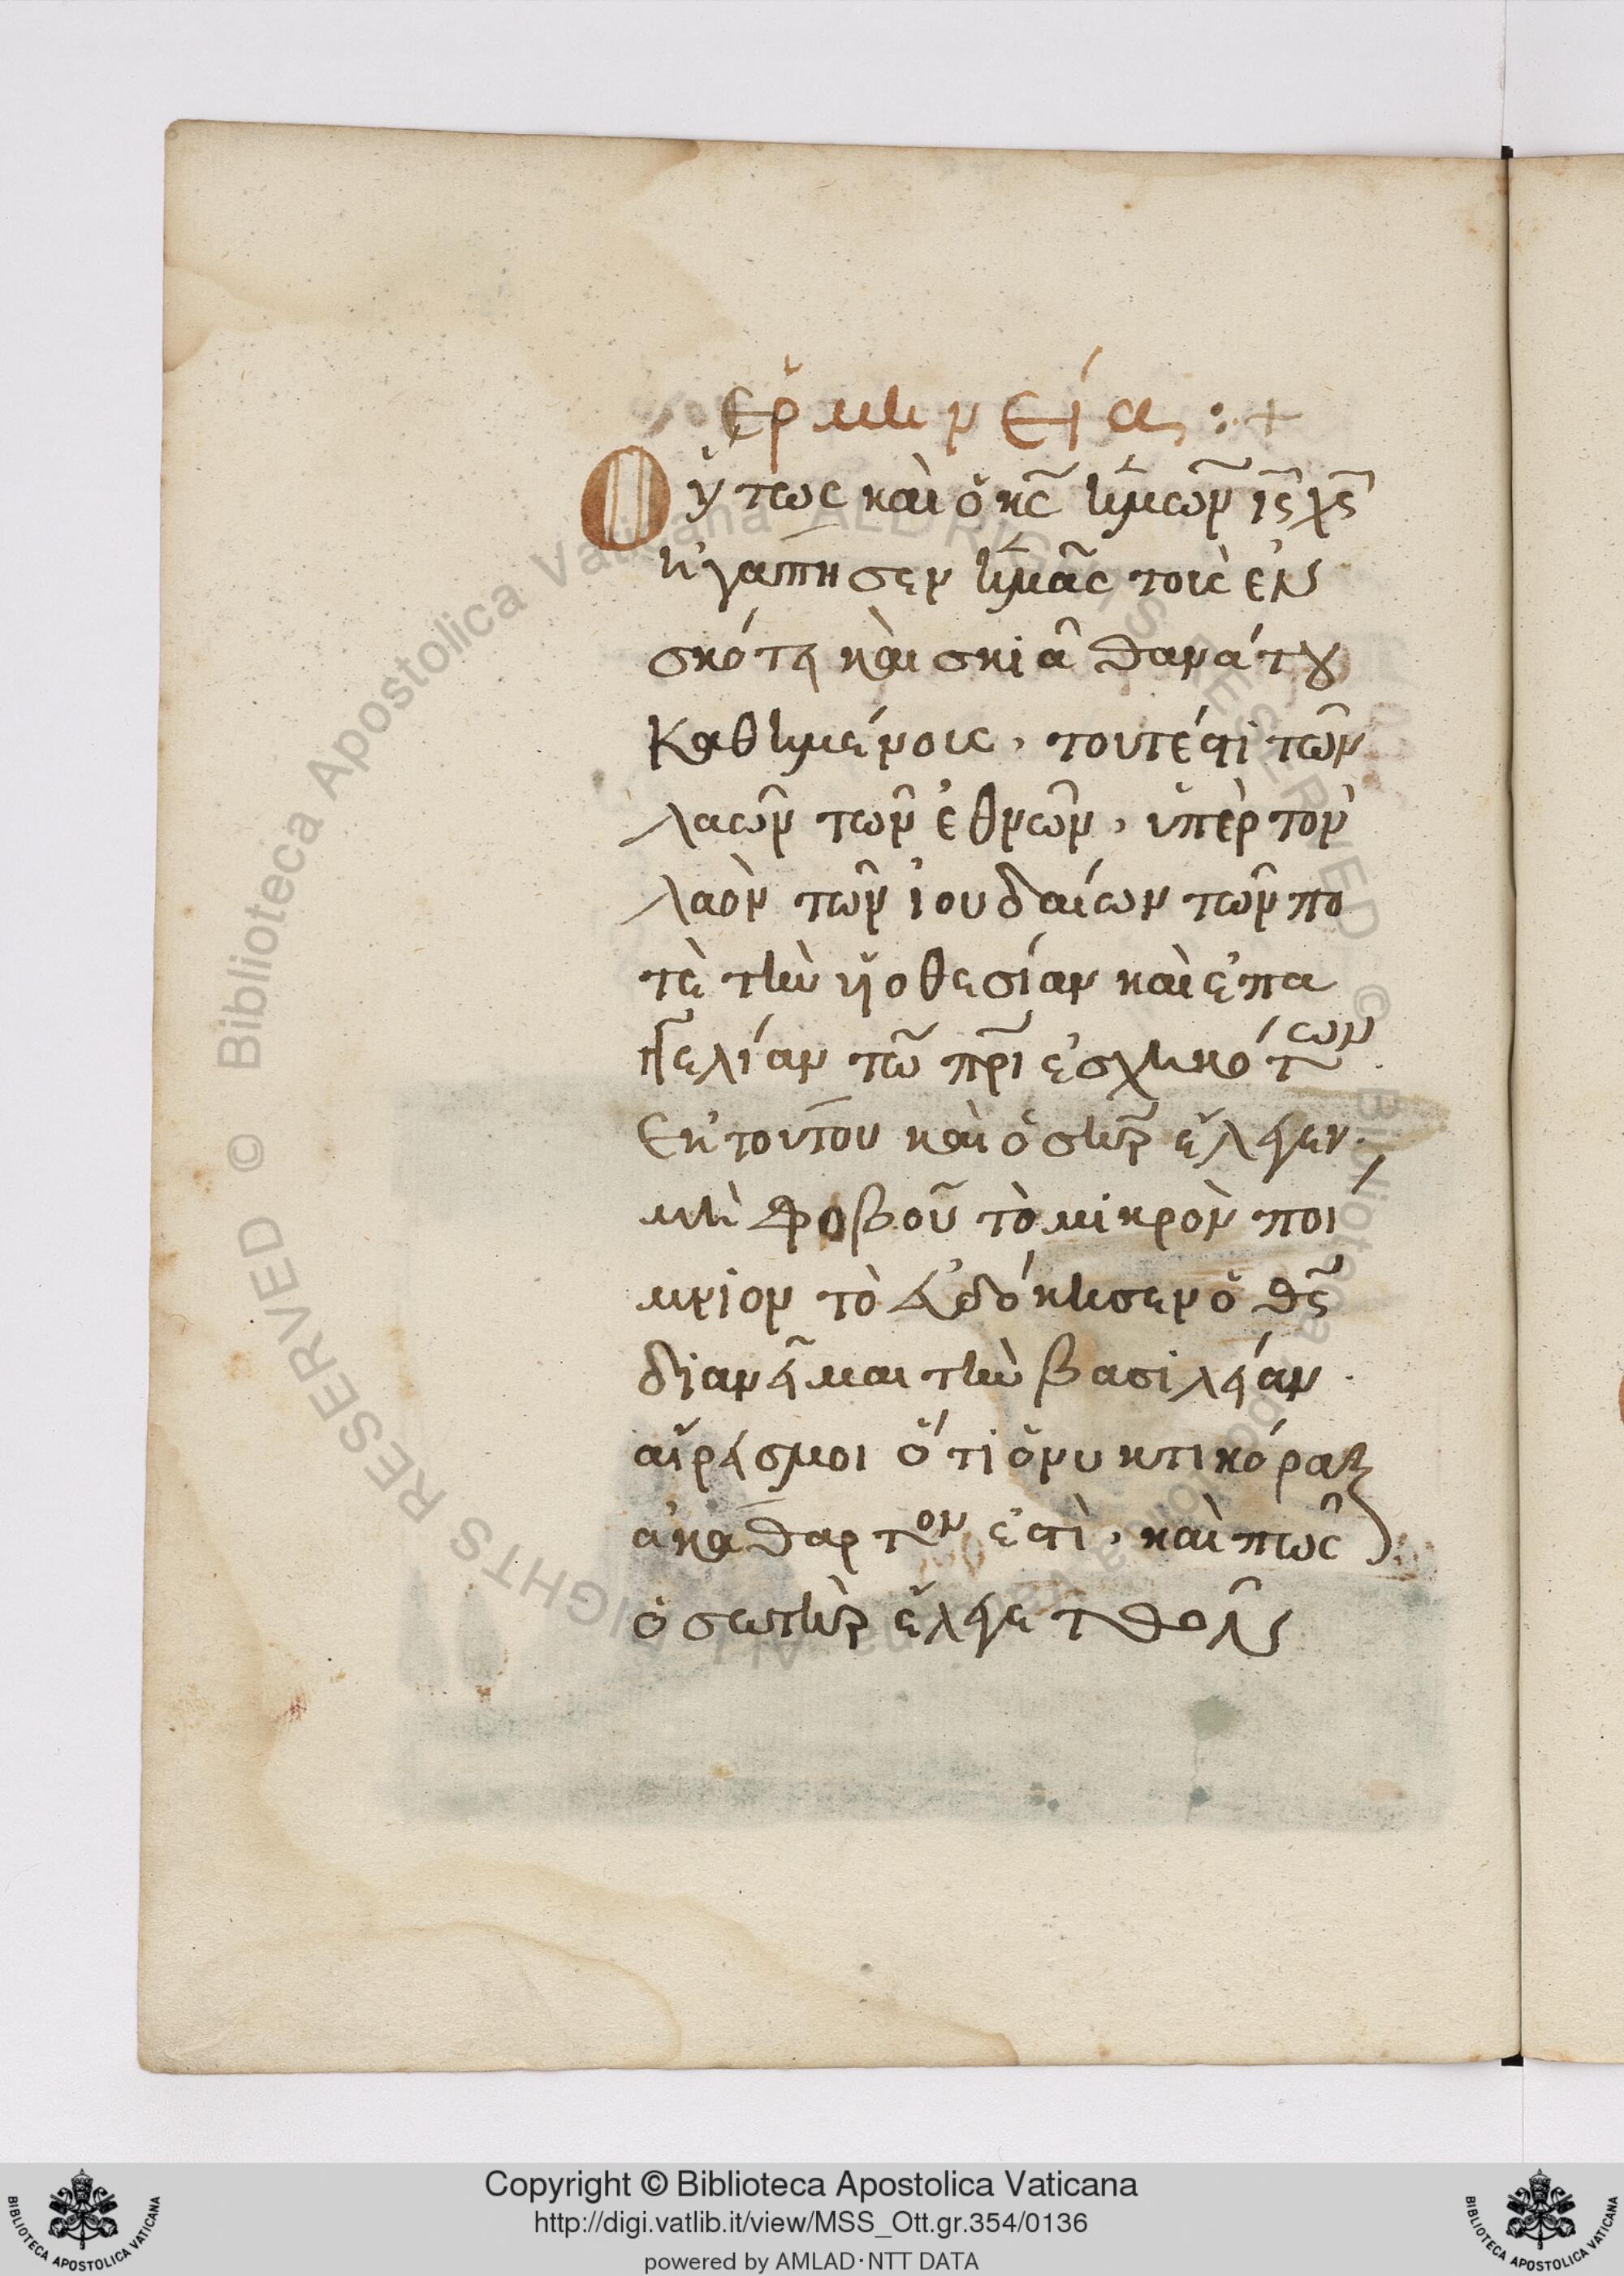 Ερμηνεία :+
Οὕτως καὶ ὁ κς ἡμῶν ις χς
ἠγάπησεν ἡμᾶς τοὶς ἐν
σκότει καὶ σκιᾶ θανάτου
Καθημένοις, τουτέστι τῶν
λαῶν τῶν ἐθνῶν, ὑπὲρ τὸν
λαὸν τῶν ἰουδαίων τῶν πο
τὲ τὴν ὑϊοθεσίαν καὶ ἐπα
γγελίαν τῶ πρι ἐσχηκότων
Εκ τούτου καὶ ὁ σηρ ἔλεγεν.
μὴ φοβοῦ τὸ μικρὸν ποί
μνιον τὸ εὐδόκησεν ὁ θς
διανεῖμαι τὴν βασιλείαν.
αἴρεσμοι ὅτι ὁ νυκτικόραξ
ἀκάθαρτον ἐστὶ, καὶ πῶς
ὁ σωτὴρ ἔλεγε τ
Copyright © Biblioteca Apostolica Vaticana
http://digi.vatlib.it/view/MSS_Ott.gr.354/0136
powered by AMLAD·NTT DATA
BIBLIOTECA APOSTOLICA VATICANA
BIBLIOTECA APOSTOLICA VATICANA
© Biblioteca Apostolica Vaticana ALL RIGHTS RESERVED
© Biblioteca Apostolica Vaticana ALL RIGHTS RESERVED